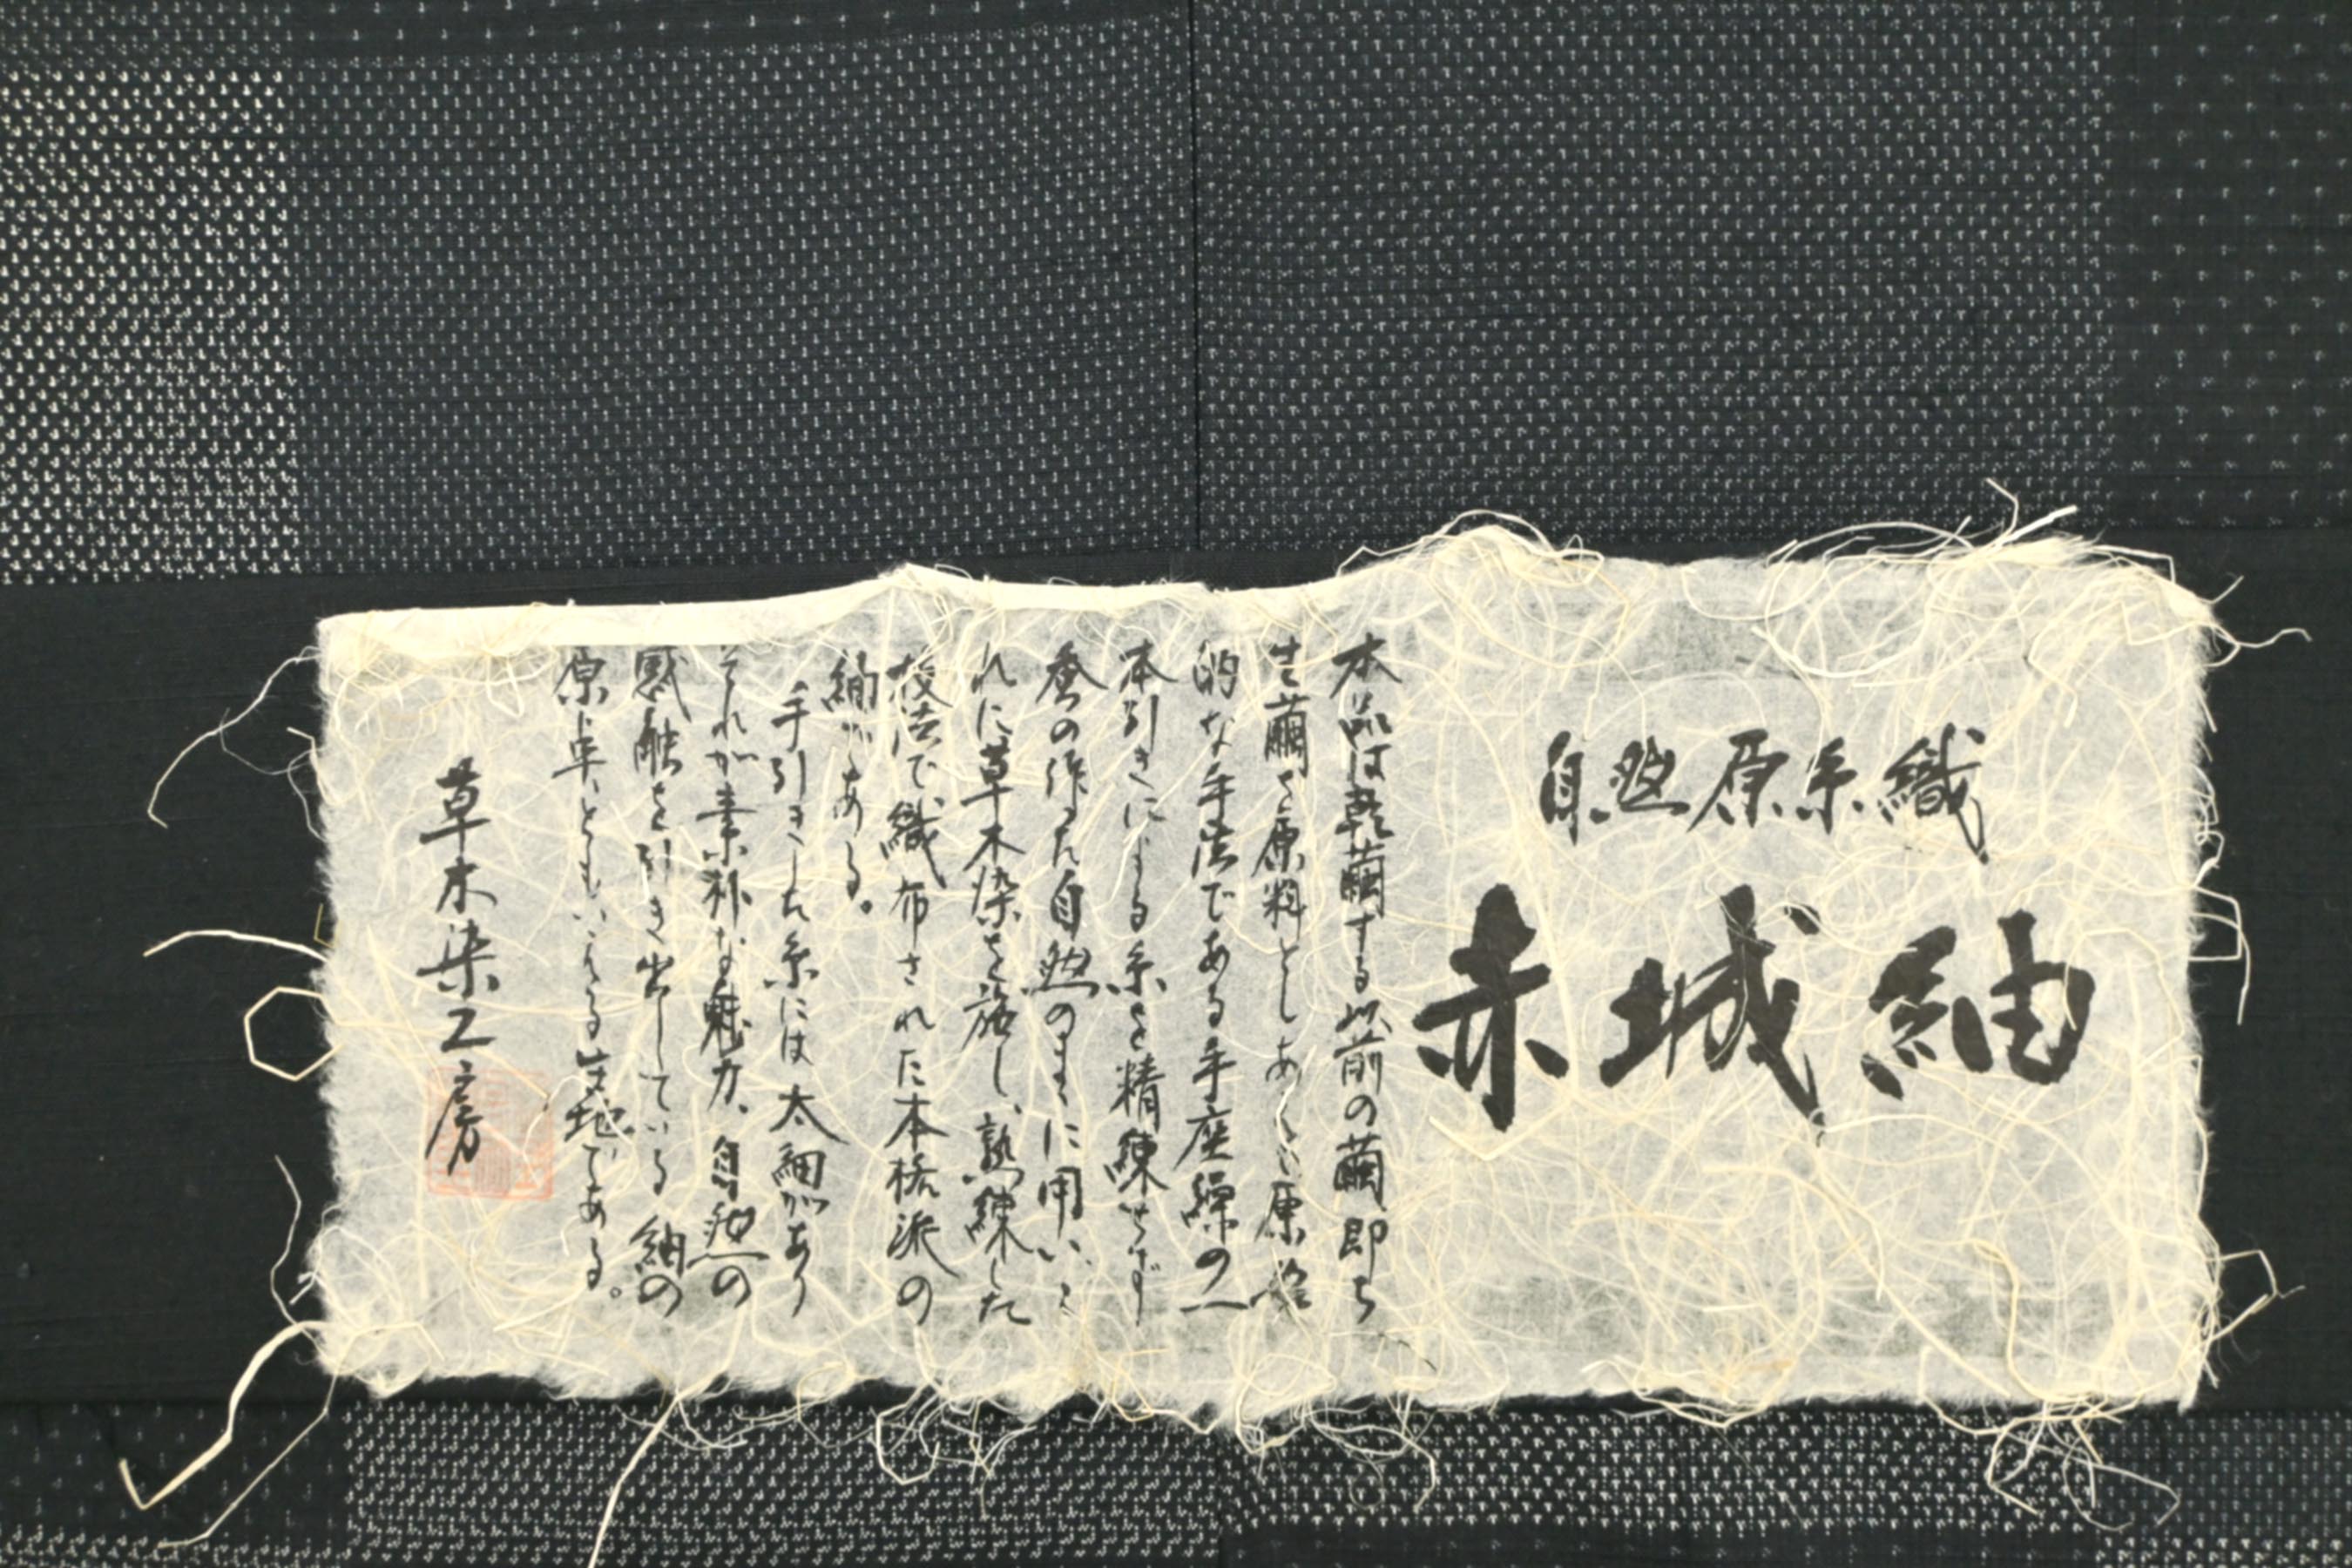 自然原糸織
赤城紬
本品は乾繭する以前の繭即ち
生繭を原料としあくまで原始
的な手法である手座繰の一
本引きによる糸を精練せず
蚕の作った自然のままに用いこ
れに草木染を施し、熟練した
技法で織布された本格派の
紬である。
手引きした糸には太細があり
それが素朴な魅力、自然の
感触を引き出している紬の
原点ともいえる生地である。
草木染工房